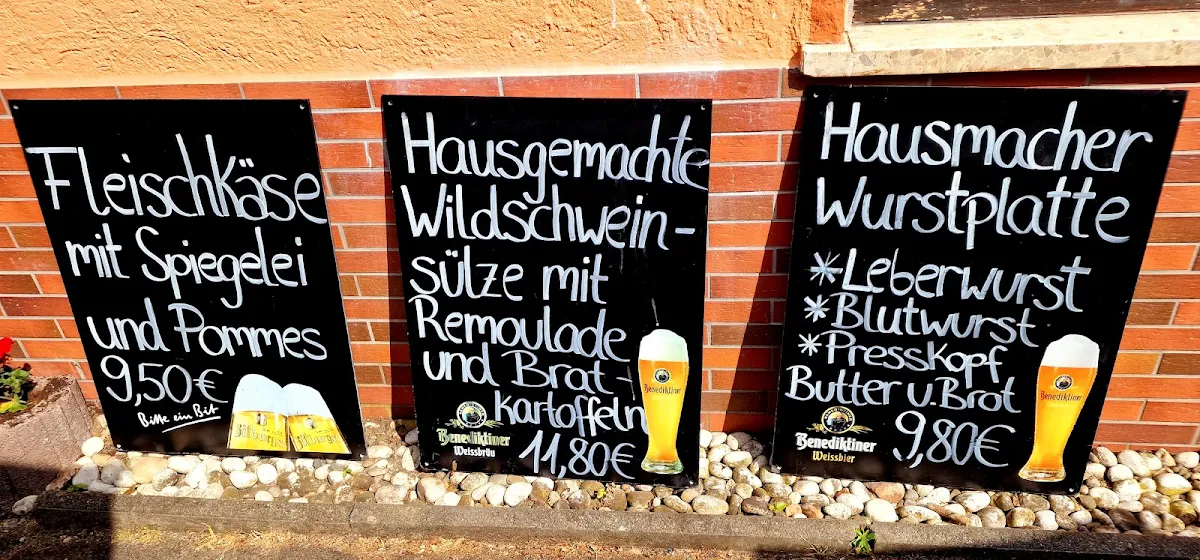 Fleischkäse
mit Spiegelei
und Pommes
9,50€
Bitte ein Bit
Hausgemachte
Wildschwein-
sülze mit
Remoulade
und Brat-
Kartoffeln
11,80€
Benediktiner
Weissbräu
Benediktiner
Hausmacher
Wurstplatte
*Leberwurst
*Blutwurst
*Presskopf
Butter u. Brot
9,80€
Benediktiner
Weissbier
Benediktiner